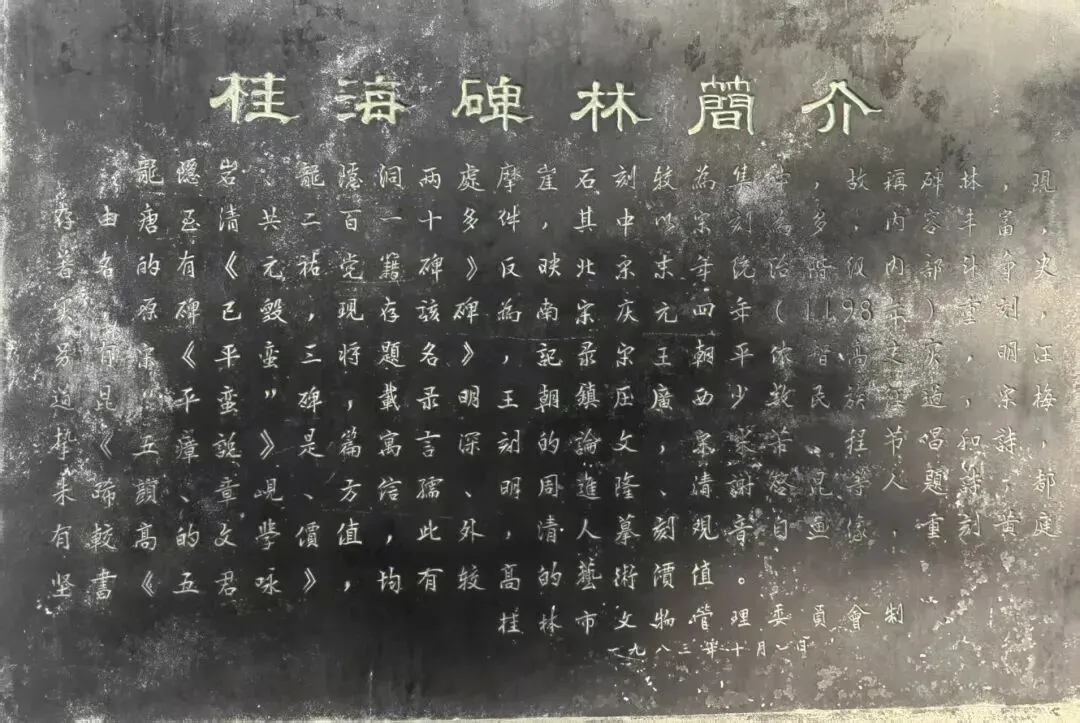 桂海碑林簡介
龍隱岩、龍隱洞兩處摩崖石刻較為集中,故稱碑林,現
存由唐至清共二百一十多件,其中以宋刻為多,内容丰富,
著名的有《元祐党籍碑》反映北宋末年统治阶级内部斗争史
实,原碑已毁,現存該碑為南宋庆元四年(1198年)重刻,
另有宋《平蛮三将題名》,記录宋王朝平侬智高之实,明汪
道昆“平蛮”碑,載录明王朝鎮压廣西少数民族,宋梅
挚《五瘴説》是篇寓言深刻的論文,宋 节唱和詩,
米 顔、章峴、方信孺、明周進隆、清謝启昆等人題詩,都
有較高的文學價值,此外,清人摹刻观音自画像,重刻黄庭
坚書《五君咏》,均有较高的藝術價值。
桂林市文物管理委員會制
一九八三年十月一日